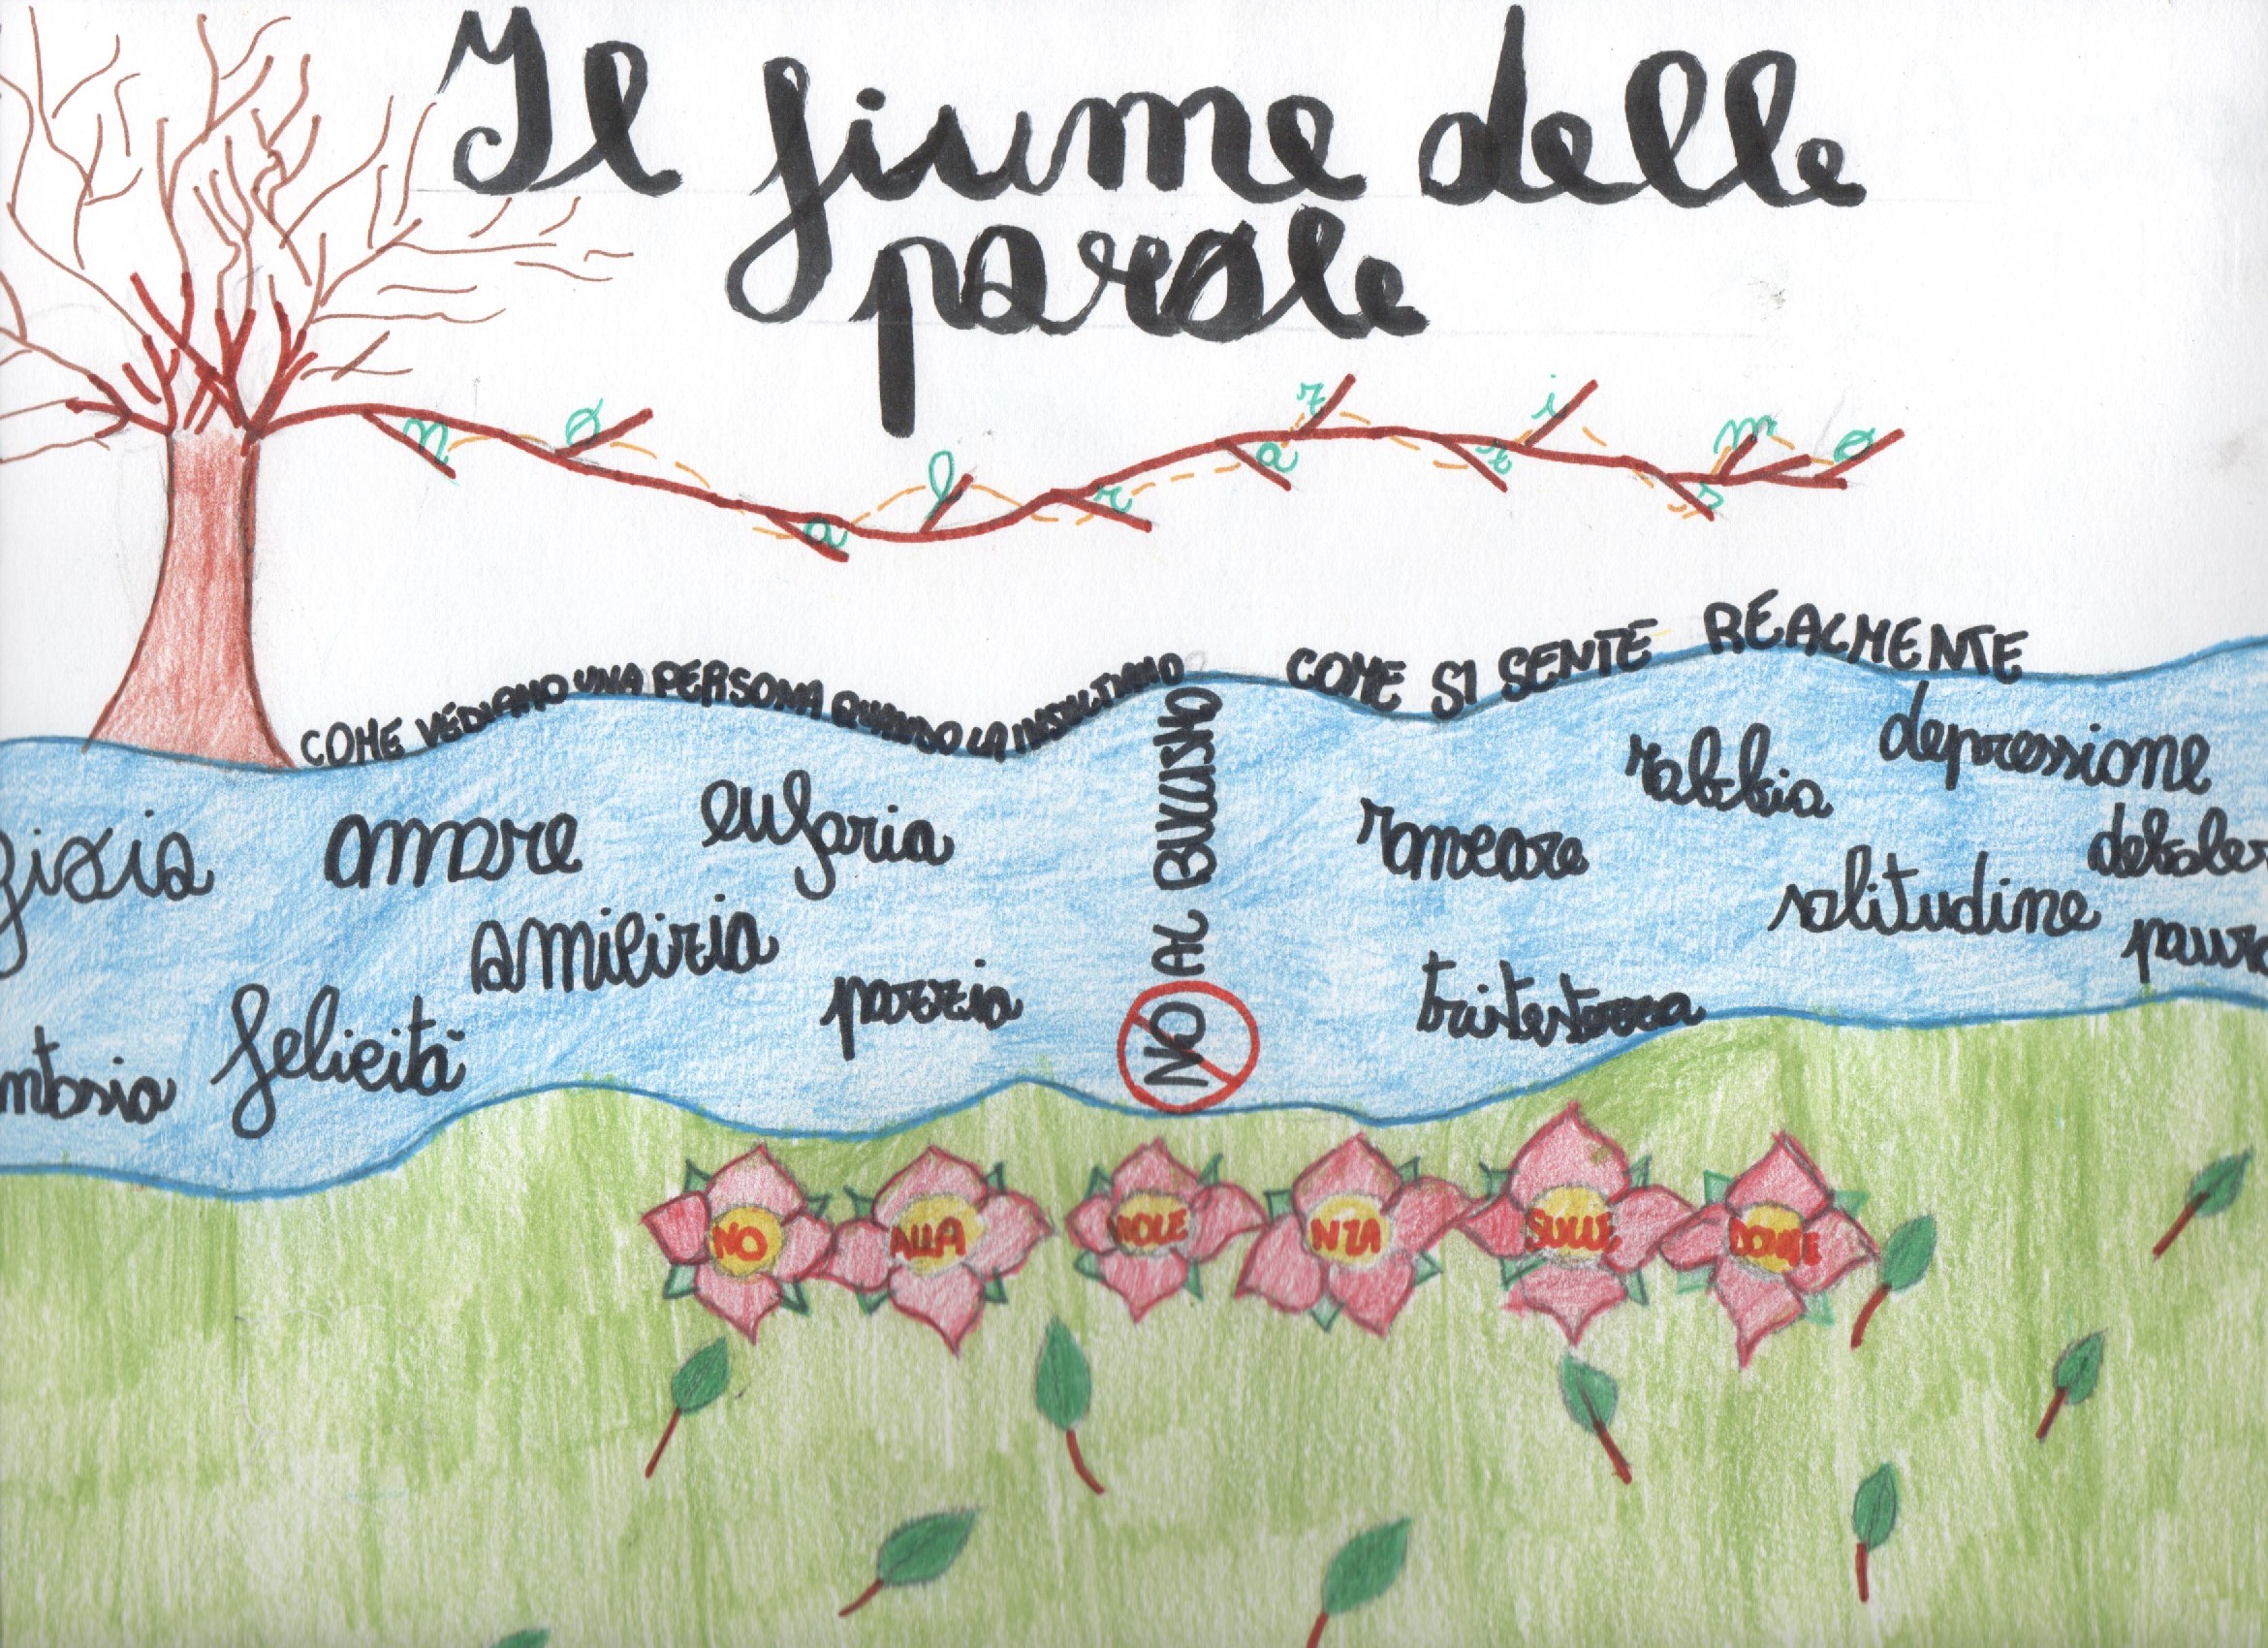 Il fiume delle
parole
no al razzismo
COME VEDIAMO UNA PERSONA QUANDO LA INSULTIAMO
COME SI SENTE REALMENTE
NO AL BULLISMO
amore
euforia
amicizia
pazzia
felicità
ntasia
rabbia
depressione
rancore
debolez
solitudine
paura
NO ALLA VIOLE NZA SULLE DONNE